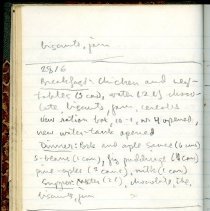 biscuits, jam
29/6
Breakfast: Chicken and vege-
tables (3 cans), water (2 l) choco-
late biscuits, jam, cereals
New ration box, no 4 opened,
new water-tank opened
Dinner: Pork and apple sauce (6 cans)
5-beans (1 can), fig puddings (4 can)
pine-apples (2 cans), milk (1 can)
Supper: (2 l), chocolate,
biscuits, jam